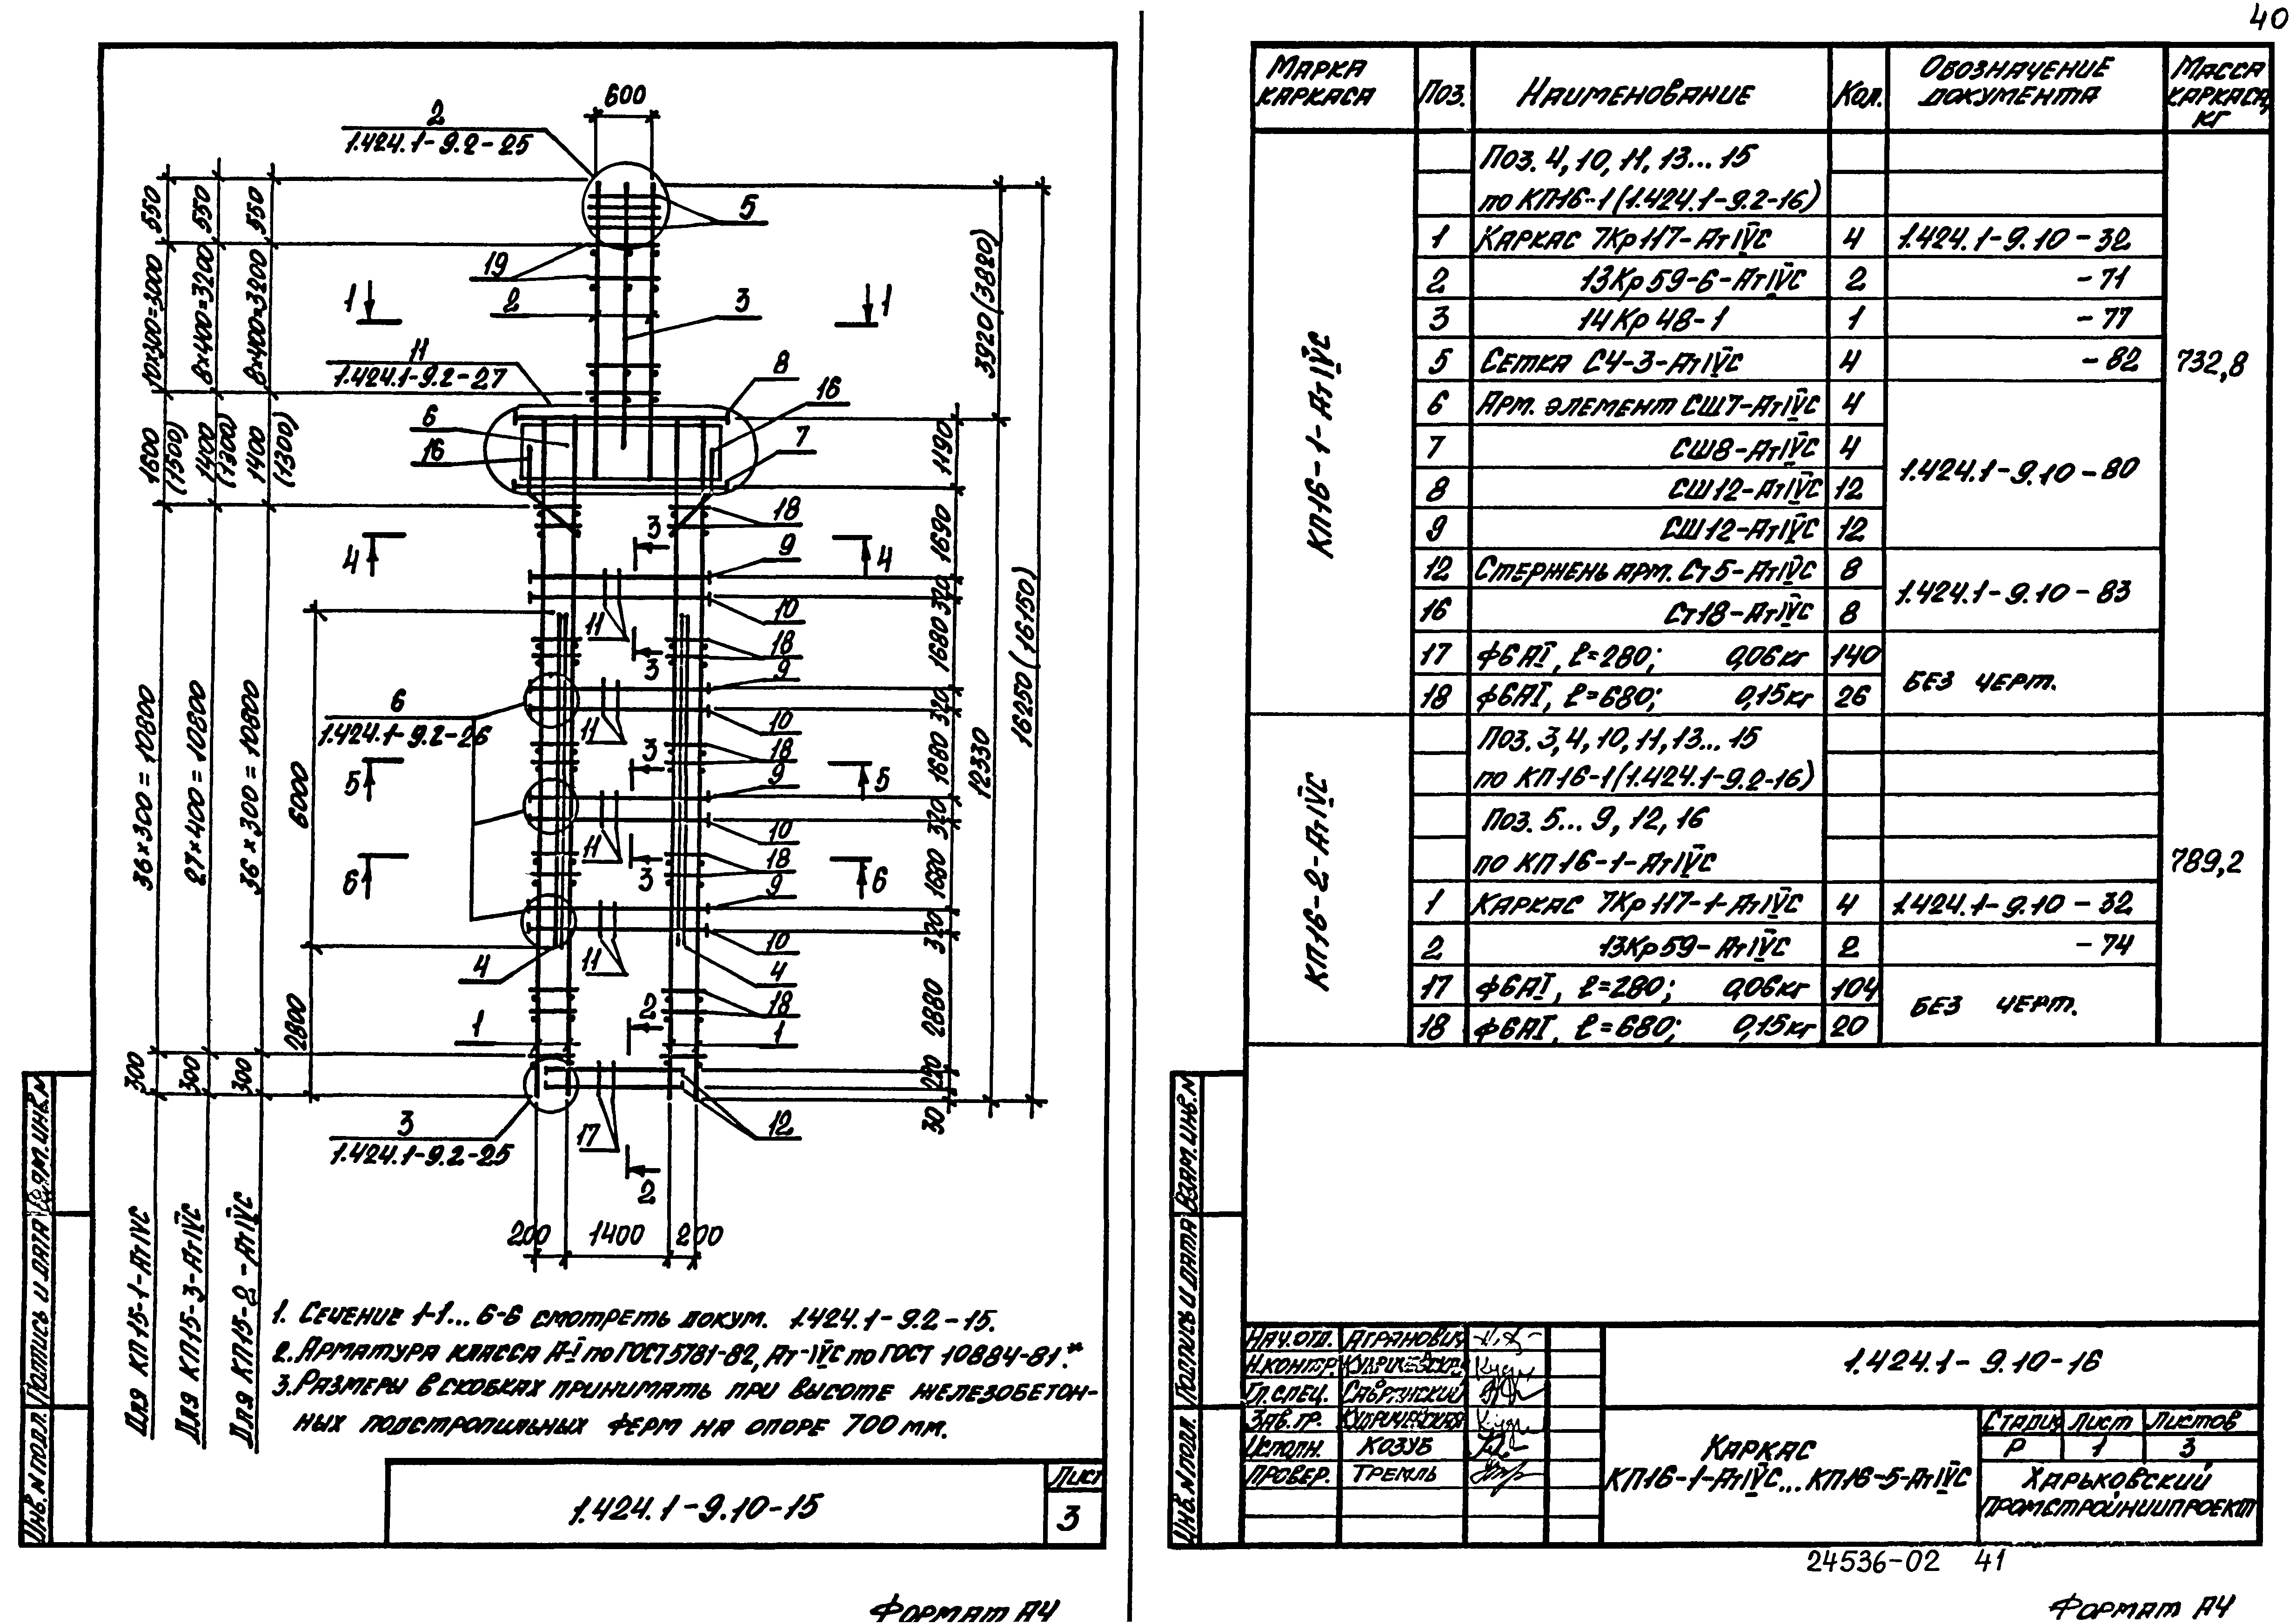 40
600
2
1.424.1-9.2-25
5
19
2
3
1
1
11
1.424.1-9.2-27
8
16
6
16
7
18
3
4
9
4
10
11
3
18
9
6
1.424.1-9.2-26
10
11
18
3
5
9
5
10
11
18
6
3
6
9
10
11
4
4
18
2
1
1
3
1.424.1-9.2-25
17
12
2
200 1400 200
550 550 550
10×300=3000 8×400=3200 8×400=3200
1600 (1500) 1400 (1300) 1400 (1300)
36×300=10800 27×400=10800 36×300=10800
6000
2800
300 300 300
3920(3820)
1190
1690
320
1680
320
1680
320
1680
320
2880
250
30
12330
16250(16150)
Для КП15-1-АтIVС
Для КП15-3-АтIVС
Для КП15-2-АтIVС
1. Сечение 1-1... 6-6 смотреть докум. 1.424.1-9.2-15.
2. Арматура класса А-I по ГОСТ 5781-82, Ат-IVС по ГОСТ 10884-81.*
3. Размеры в скобках принимать при высоте железобетон-
ных подстропильных ферм на опоре 700 мм.
1.424.1-9.10-15
Лист
3
Инв. N подл. Подпись и дата Взам. инв. N
Формат А4
Марка каркаса Поз. Наименование Кол. Обозначение документа Масса каркаса, кг
КП16-1-АтIVС
Поз. 4, 10, 11, 13...15
по КП16-1(1.424.1-9.2-16)
1 Каркас 7Кр117-АтIVС 4 1.424.1-9.10-32
2 13Кр59-6-АтIVС 2 -71
3 14Кр48-1 1 -77
5 Сетка С4-3-АтIVС 4 -82 732,8
6 Арм. элемент СШ7-АтIVС 4
7 СШ8-АтIVС 4 1.424.1-9.10-80
8 СШ12-АтIVС 12
9 СШ12-АтIVС 12
12 Стержень арм. Ст5-АтIVС 8 1.424.1-9.10-83
16 Ст18-АтIVС 8
17 ф6АI, ℓ=280; 0,06кг 140 Без черт.
18 ф6АI, ℓ=680; 0,15кг 26
КП16-2-АтIVС
Поз. 3, 4, 10, 11, 13...15
по КП16-1(1.424.1-9.2-16)
Поз. 5...9, 12, 16
по КП16-1-АтIVС 789,2
1 Каркас 7Кр117-1-АтIVС 4 1.424.1-9.10-32
2 13Кр59-АтIVС 2 -74
17 ф6АI, ℓ=280; 0,06кг 104 Без черт.
18 ф6АI, ℓ=680; 0,15кг 20
Нач. отд. Агранович
Н.контр.
Гл. спец.
Зав. гр.
Исполн. Козуб
Провер. Тремль
1.424.1-9.10-16
Каркас
КП16-1-АтIVС...КП16-5-АтIVС
Стадия Лист Листов
Р 1 3
Харьковский
Промстройниипроект
Инв. N подл. Подпись и дата Взам. инв. N
24536-02 41
Формат А4